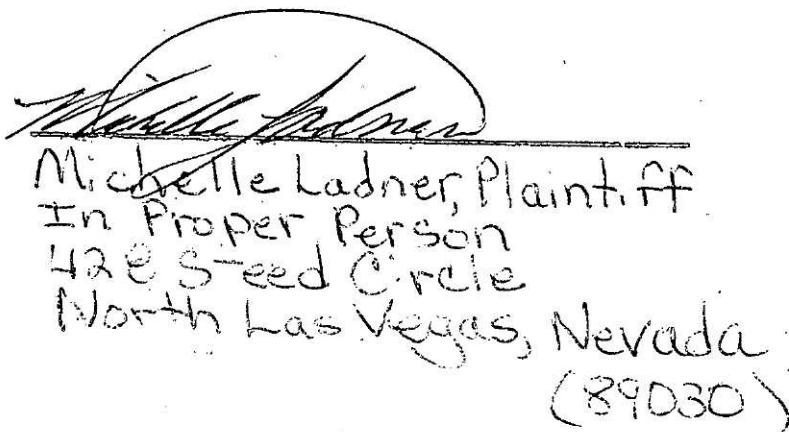 Michelle Ladner
Michelle Ladner, Plaintiff
In Proper Person
428 Steed Circle
North Las Vegas, Nevada
(89030)